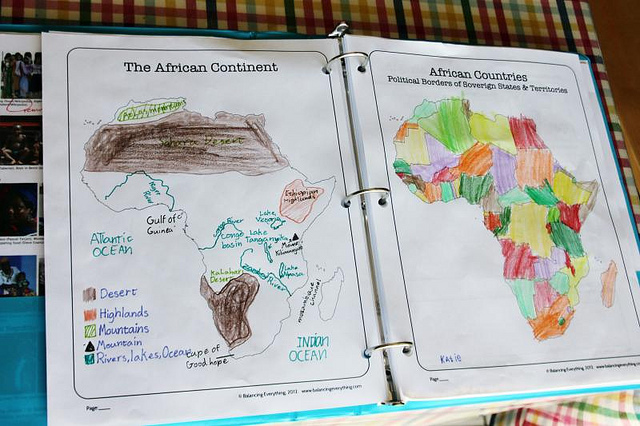 The African Continent
Atlas Mountains
Sahara Desert
Niger River
Ethiopian Highlands
Gulf of Guinea
Atlantic OCEAN
Congo River
Congo basin
Lake Victoria
Lake Tanganyika
Mount Kilimanjaro
Lake Nyasa
Zambezi River
Kalahari Desert
Mozambique Channel
INDIAN OCEAN
Cape of Good hope
Desert
Highlands
Mountains
Mountain
Rivers, lakes, Ocean
Page
© Balancing Everything, 2013 www.balancingeverything.com
African Countries
Political Borders of Soverign States & Territories
Katie
Page
© Balancing Everything, 2013 www.balancingeverything.com